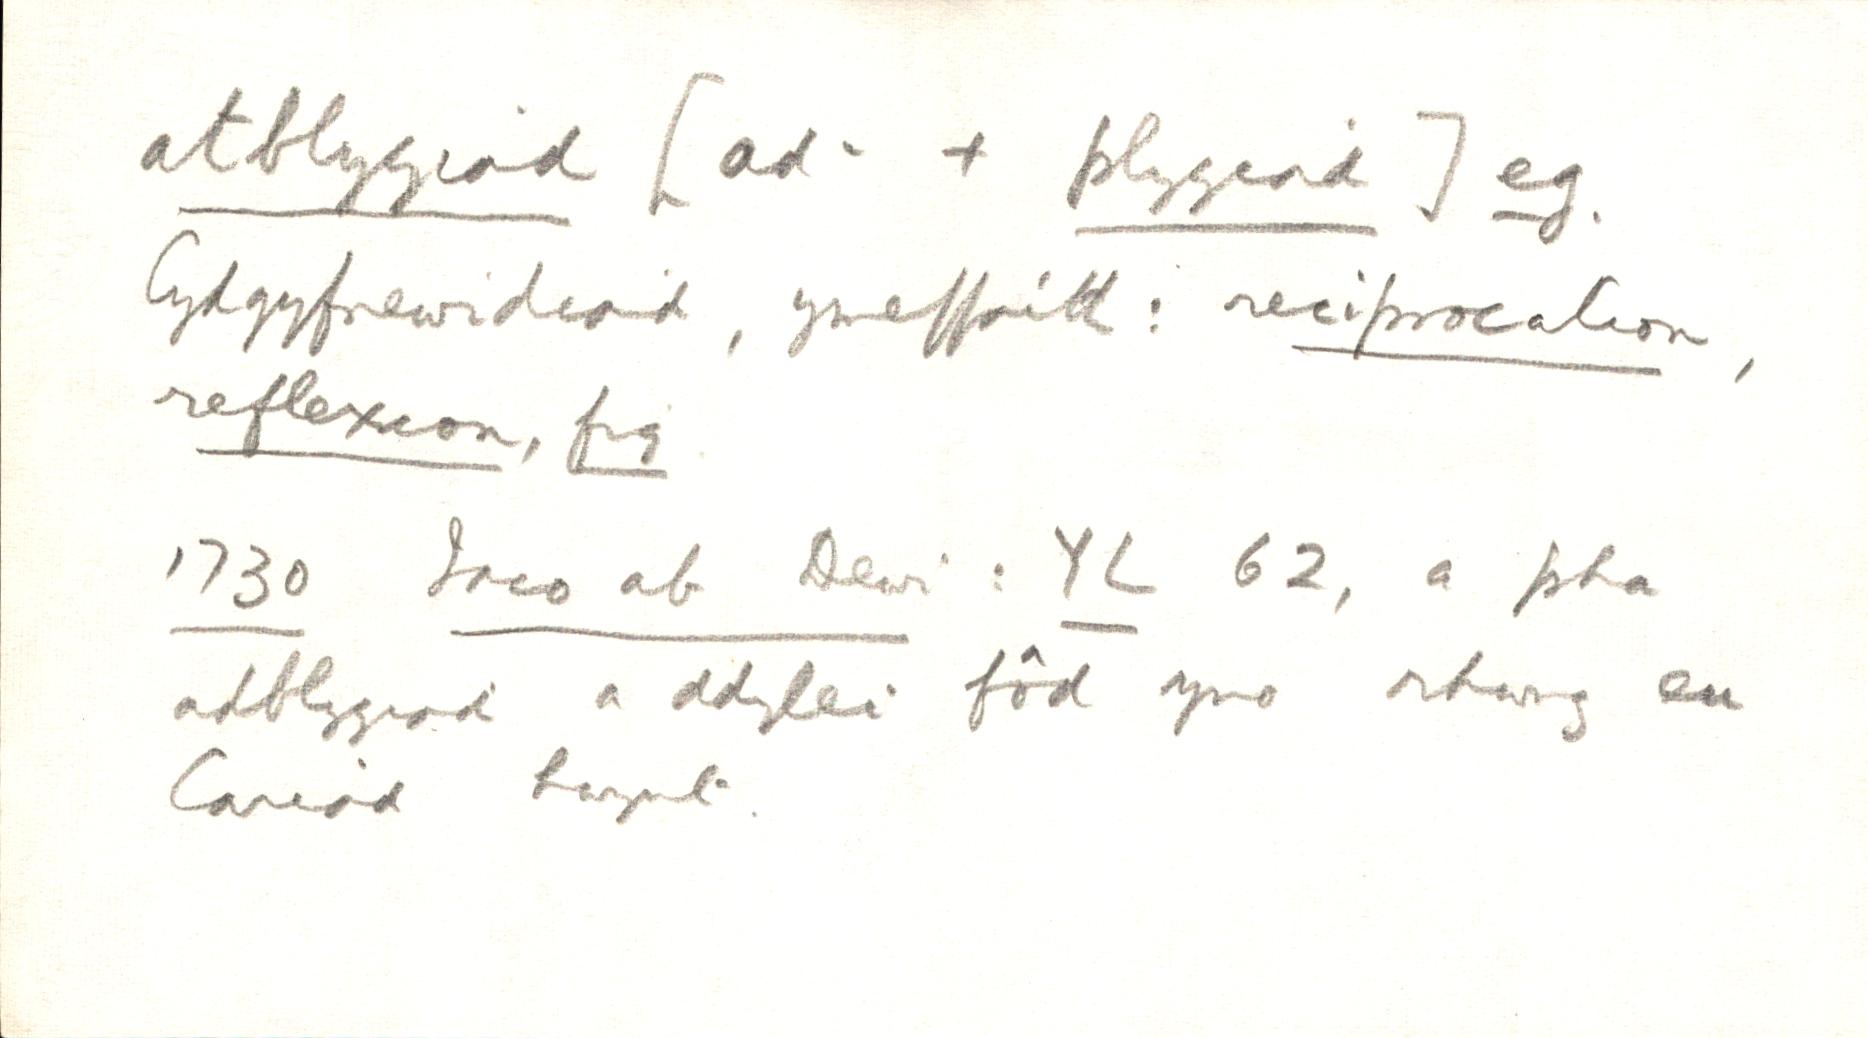 atblygiad [ad- + plygiad] eg.
Cydgyfnewidiad, ymeffaith: reciprocation,
reflexion, fig
1730 Iaco ab Dewi: YL 62, a pha
adblygiad a ddylei fôd yno rhwng eu
Cariad hwynt.